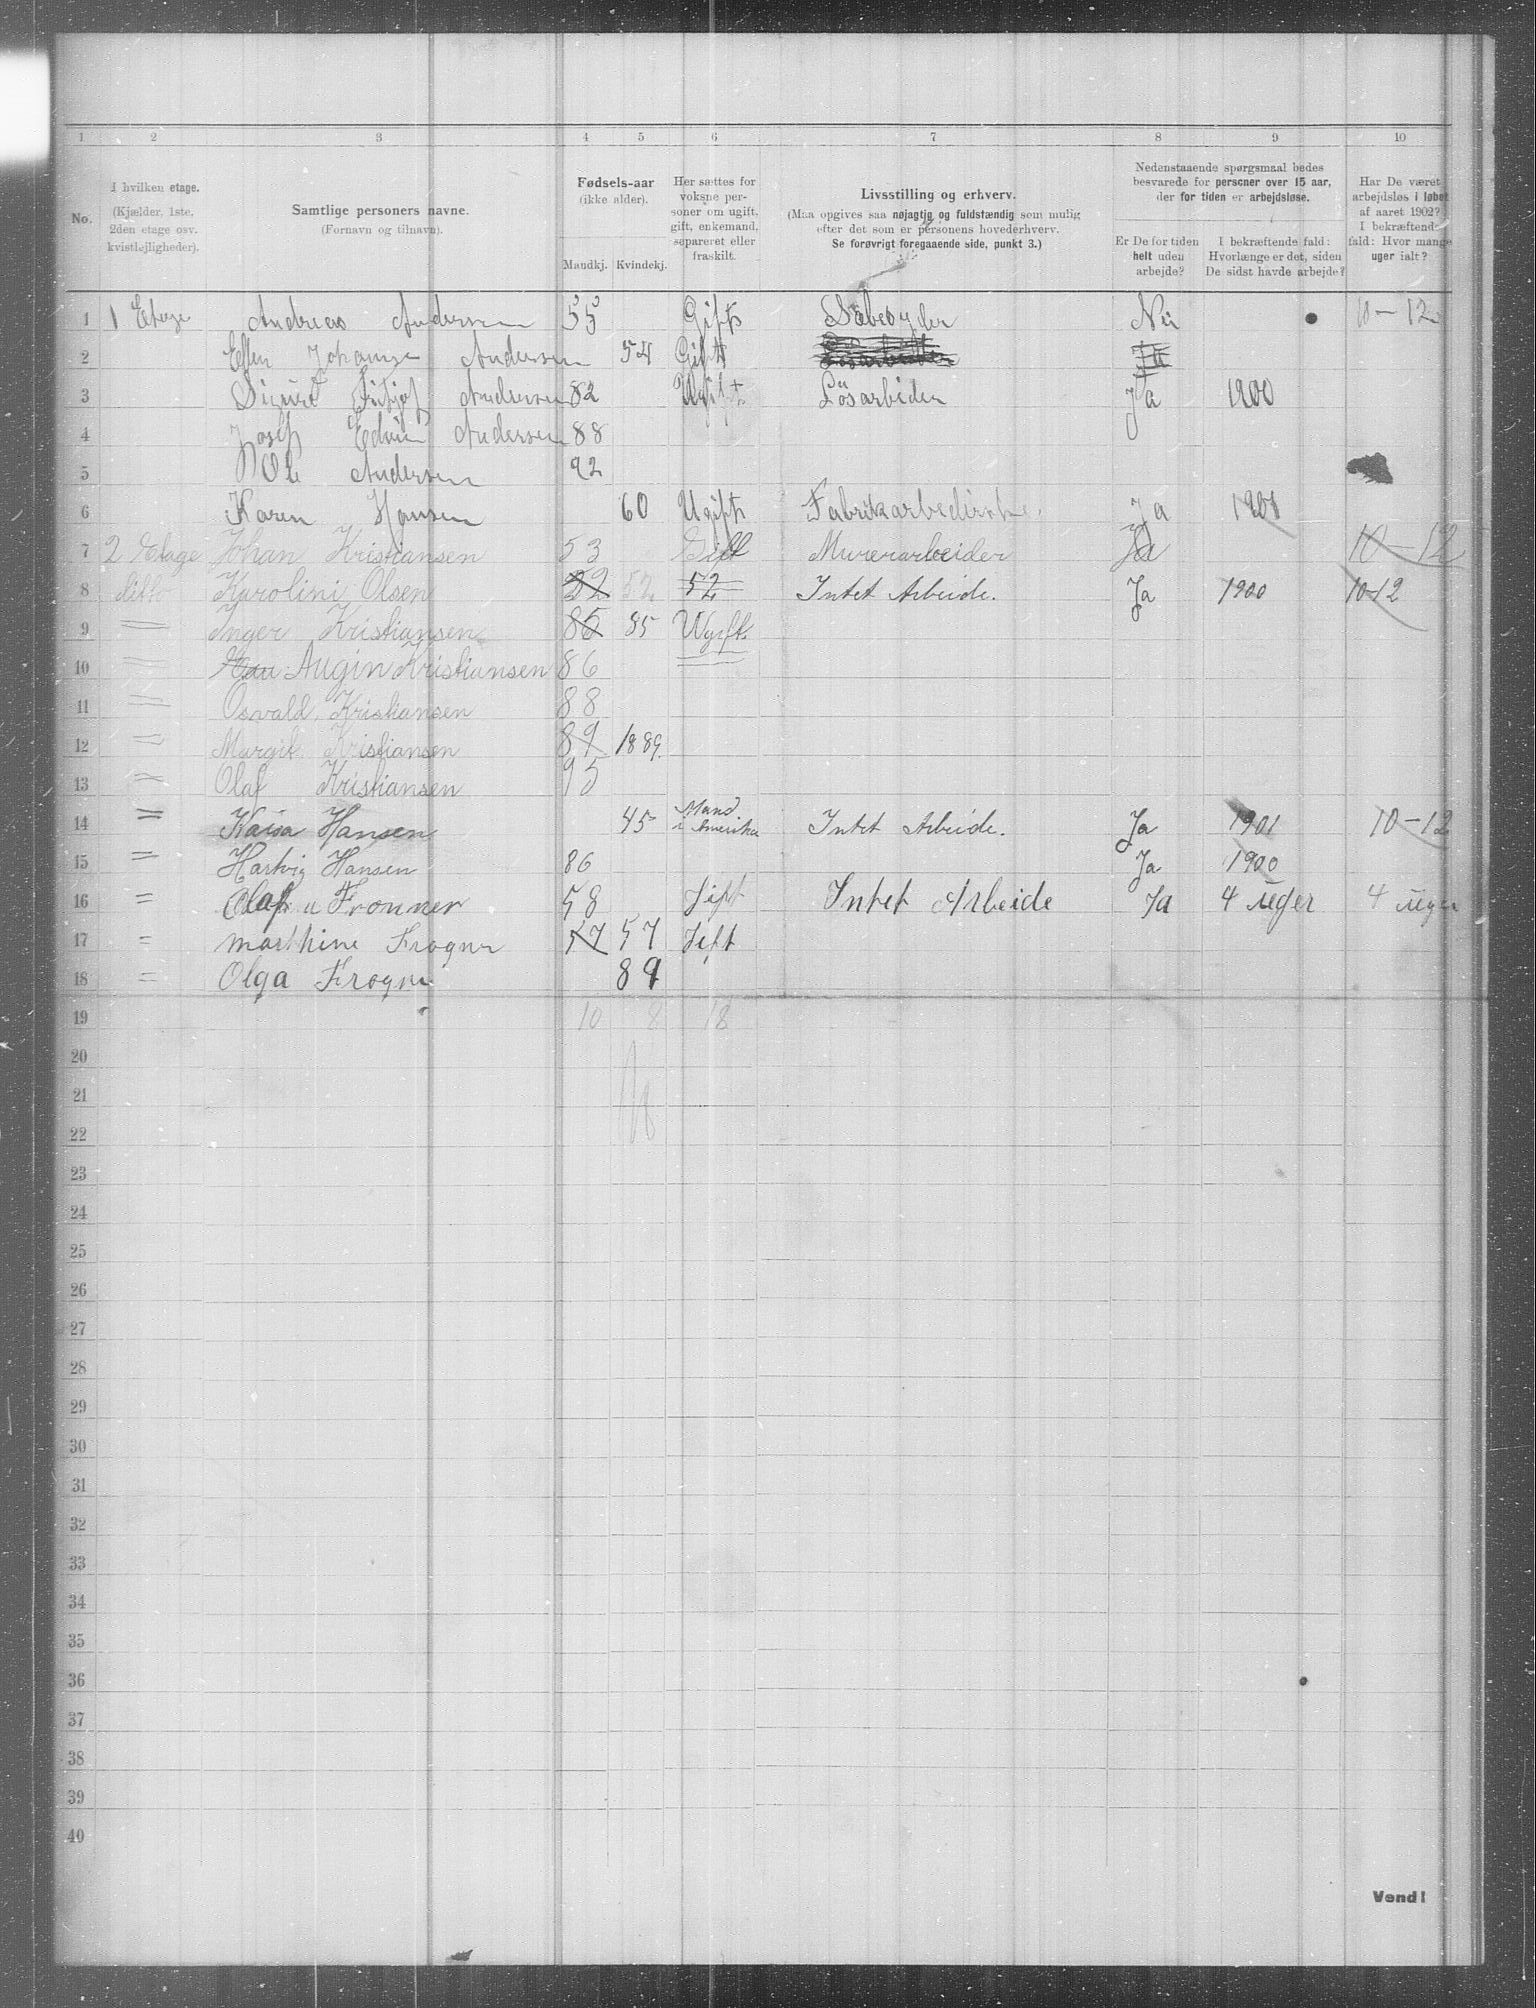 1 2 3 4 5 6 7 8 9 10
No.
I hvilken etage.
(Kjælder, 1ste,
2den etage osv.
kvistlejligheder).
Samtlige personers navne.
(Fornavn og tilnavn).
Fødsels-aar
(ikke alder).
Mandkj. Kvindekj.
Her sættes for
voksne per-
soner om ugift,
gift, enkemand,
separeret eller
fraskilt.
Livsstilling og erhverv.
(Maa opgives saa nøjagtig og fuldstændig som mulig
efter det som er personens hovederhverv.
Se forøvrigt foregaaende side, punkt 3.)
Nedenstaaende spørgsmaal bedes
besvarede for personer over 15 aar,
der for tiden er arbejdsløse.
Er De for tiden
helt uden
arbejde?
I bekræftende fald:
Hvorlænge er det, siden
De sidst havde arbejde?
Har De været
arbejdsløs i løbet
af aaret 1902?
I bekræftende
fald: Hvor mange
uger ialt?
1 1 Etage Andreas Andersen 55 Gift Nei 10-12
2 Andersen 54 Gift Løsarbeider Ja
3 Sigurd Andersen 82 Ugift Løsarbeider Ja 1900
4 Josef Edvin Andersen 88
5 Ole Andersen 92
6 Karen Hansen 60 Ugift Ja 1901
7 2 Etage Johan Kristiansen 53 Gift Murerarbeider Ja 10-12
8 ditto Karolini Olsen 52 52 52 Intet Arbeide. Ja 1900 10-12
9 = Inger Kristiansen 85 85 Ugift
10 = Augin Kristiansen 86
11 = Osvald Kristiansen 88
12 = Margit Kristiansen 89 1889.
13 = Olaf Kristiansen 95
14 = Kaisa Hansen 45 Mand i Amerika Intet Arbeide. Ja 1901 10-12
15 = Hartvig Hansen 86 Ja 1900
16 = Olaf 58 Gift Intet Arbeide Ja 4 uger 4 uger
17 = Marthine Frogner 57 57 Gift
18 = Olga Frogner 89
19 10 8 18
20
21
22
23
24
25
26
27
28
29
30
31
32
33
34
35
36
37
38
39
40
Vend!